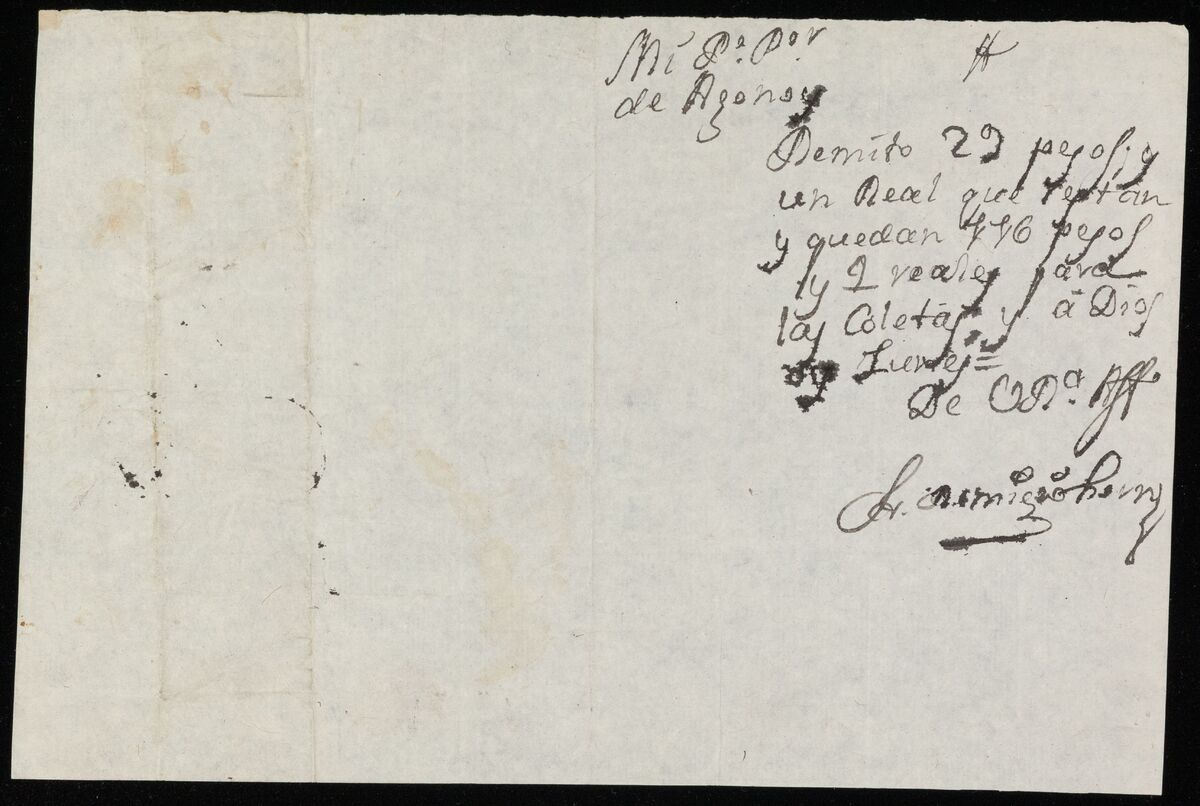 Mi Pe. Por
de Agonoy
Remito 29 pesos, y
un Real que restan
y quedan 116 pesos
y 2 reales para
las Coletas, y á Dios
oy Lunes=
De V. Ra. Aff.o
Fr. Remigio Hern